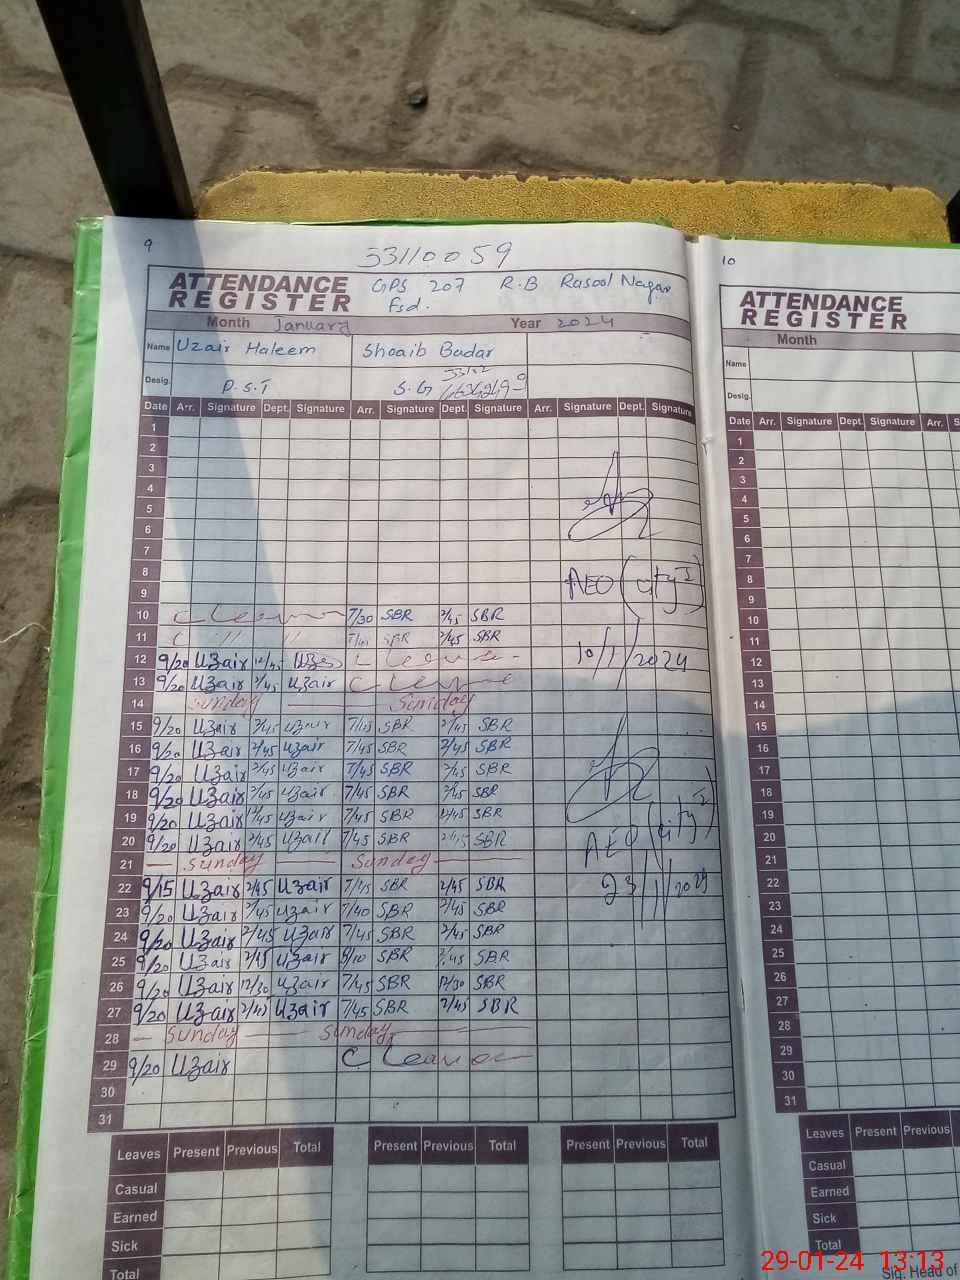 9
33110059
ATTENDANCE REGISTER
GPS 207 R.B Rasool Nagar
Fsd.
Month January Year 2024
Name Uzair Haleem Shoaib Badar
Desig. P.S.T S.G
Date Arr. Signature Dept. Signature Arr. Signature Dept. Signature Arr. Signature Dept. Signature
1
2
3
4
5
6
7
8
9 AEO (city I)
10 C Leave 7/30 SBR 2/45 SBR
11 C " " SBR 2/45 SBR
12 9/20 Uzair 12/45 C Leave 10/1/2024
13 9/20 Uzair 2/45 Uzair C Leave
14 Sunday Sunday
15 9/20 Uzair 2/45 Uzair 7/45 SBR 2/45 SBR
16 9/20 Uzair 2/45 Uzair 7/45 SBR 2/45 SBR
17 9/20 Uzair 2/45 Uzair 7/45 SBR 2/45 SBR
18 9/20 Uzair 2/45 Uzair 7/45 SBR 2/45 SBR
19 9/20 Uzair Uzair 7/45 SBR SBR
20 9/20 Uzair 2/45 Uzair 7/45 SBR 2/45 SBR AEO (city I)
21 Sunday Sunday
22 9/15 Uzair 2/45 Uzair 7/45 SBR 2/45 SBR 23/1/2024
23 9/20 Uzair 2/45 Uzair 7/40 SBR 2/45 SBR
24 9/20 Uzair 2/45 Uzair 7/45 SBR 2/45 SBR
25 9/20 Uzair 2/45 Uzair 8/10 SBR 2/45 SBR
26 9/20 Uzair 12/30 Uzair 7/45 SBR 12/30 SBR
27 9/20 Uzair 2/45 Uzair 7/45 SBR 2/45 SBR
28 Sunday Sunday
29 9/20 Uzair C Leave
30
31
Leaves Present Previous Total Present Previous Total Present Previous Total
Casual
Earned
Sick
Total
10
ATTENDANCE REGISTER
Month
Name
Desig.
Date Arr. Signature Dept. Signature Arr.
1
2
3
4
5
6
7
8
9
10
11
12
13
14
15
16
17
18
19
20
21
22
23
24
25
26
27
28
29
30
31
Leaves Present Previous
Casual
Earned
Sick
Total
Sig. Head of
29-01-24 13:13